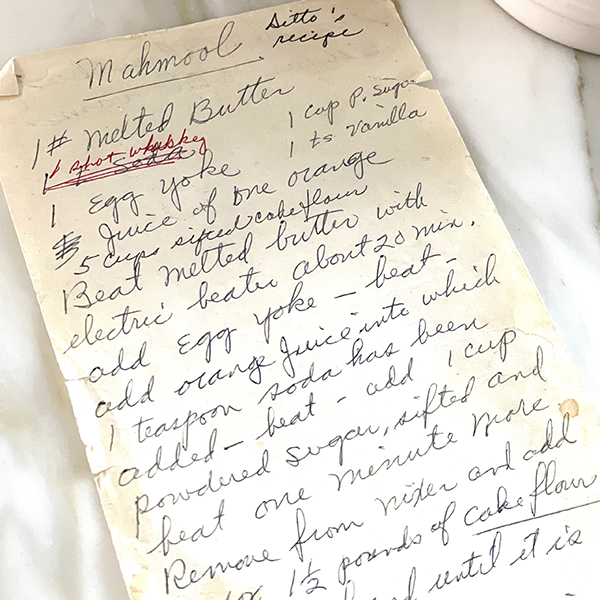 Mahmool
Sitto's
recipe
1 # Melted Butter
1 Cup P. Sugar
1 shot whiskey
1 t Soda
1 Egg Yoke
1 ts Vanilla
Juice of one orange
5 cups sifted cake flour
Beat melted butter with
electric beater about 20 min.
add Egg Yoke - beat -
add orange juice into which
1 teaspoon soda has been
added - beat - add 1 cup
powdered sugar, sifted and
beat one minute more.
Remove from mixer and add
1 1/2 pounds of cake flour
until it is